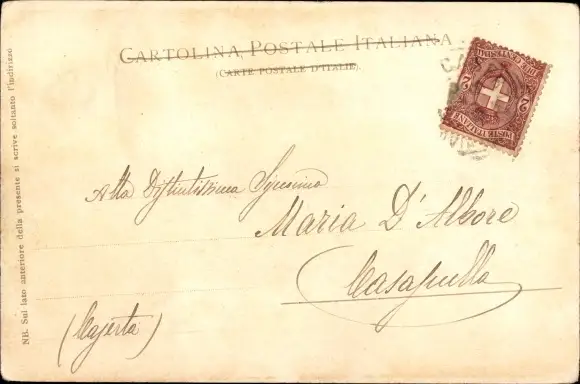 CARTOLINA POSTALE ITALIANA
(CARTE POSTALE D'ITALIE)
POSTE ITALIANE
2 2
DUE CENTESIMI
CAS
Alla Distintissima Signorina
Maria D'Albore
Casapulla
(Caserta)
NB. Sul lato anteriore della presente si scrive soltanto l'indirizzo